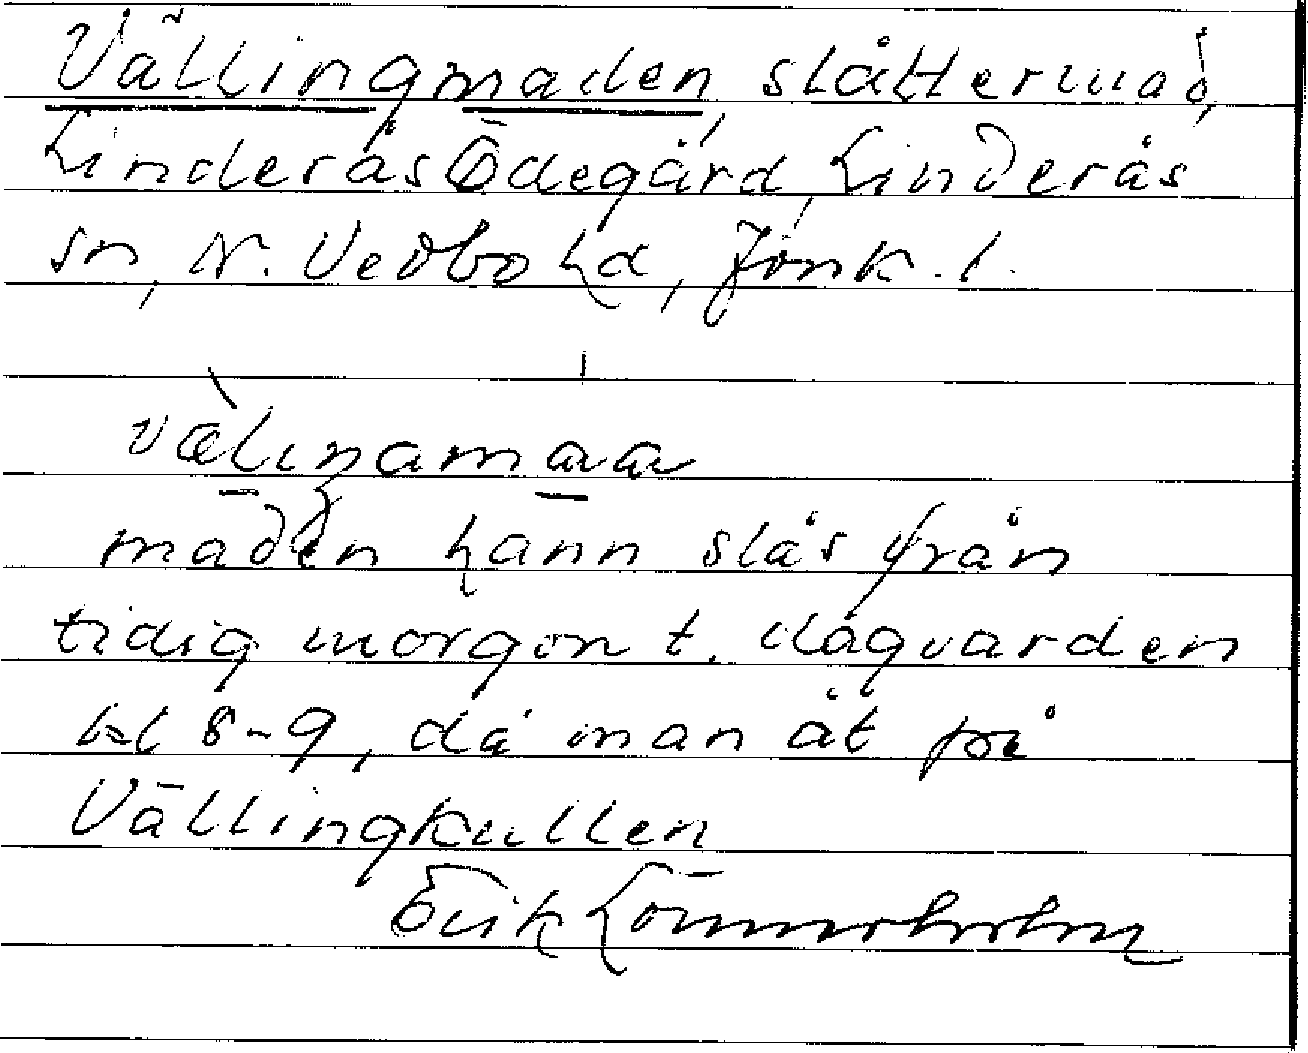 Vällingmaden, slåttermad,
Linderås Ödegård, Linderås
sn, N. Vedbo hd, Jönk. l.
maden hann slås från
tidig morgon t. dagvarden
kl 8-9, då man åt på
Vällingkullen
Erik Lönnerholm